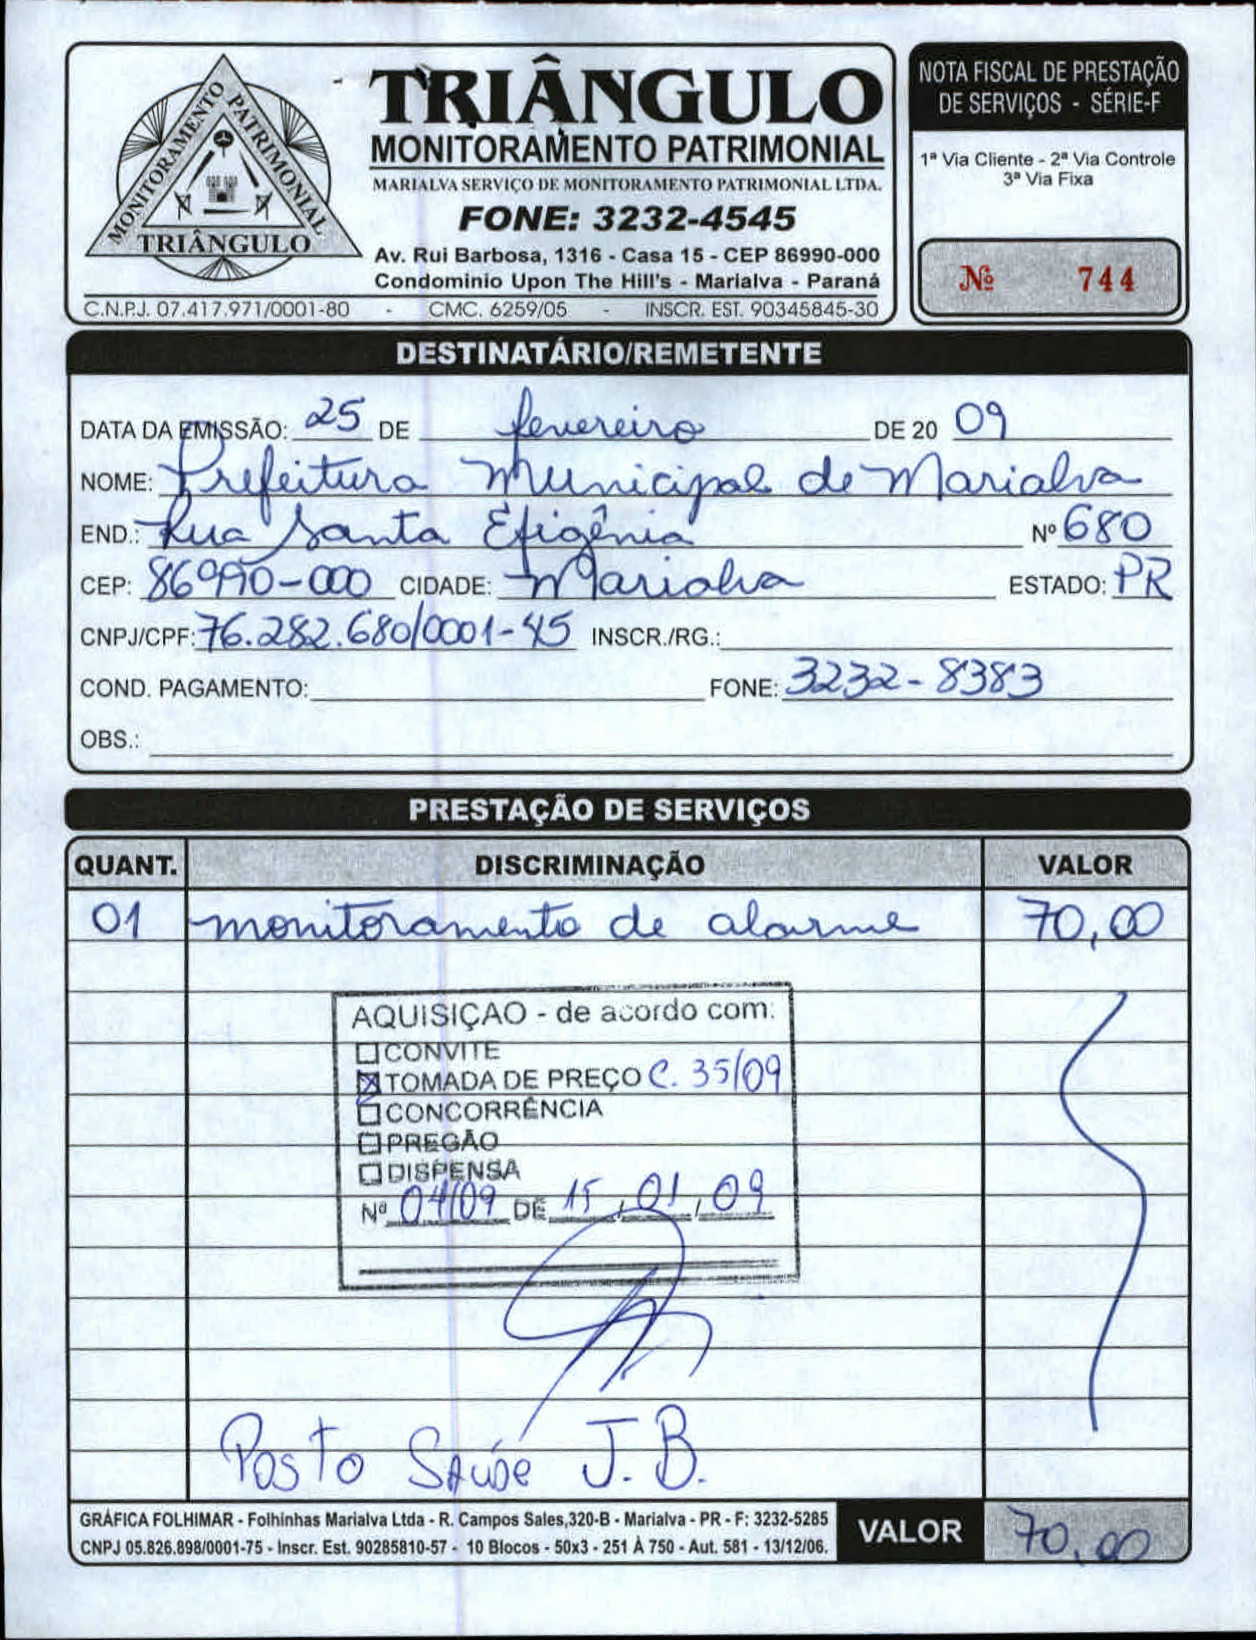 MONITORAMENTO PATRIMONIAL
TRIÂNGULO
TRIÂNGULO
MONITORAMENTO PATRIMONIAL
MARIALVA SERVIÇO DE MONITORAMENTO PATRIMONIAL LTDA.
FONE: 3232-4545
Av. Rui Barbosa, 1316 - Casa 15 - CEP 86990-000
Condominio Upon The Hill's - Marialva - Paraná
C.N.P.J. 07.417.971/0001-80 - CMC. 6259/05 - INSCR. EST. 90345845-30
NOTA FISCAL DE PRESTAÇÃO
DE SERVIÇOS - SÉRIE-F
1ª Via Cliente - 2ª Via Controle
3ª Via Fixa
Nº 744
DESTINATÁRIO/REMETENTE
DATA DA EMISSÃO: 25 DE fevereiro DE 20 09
NOME: Prefeitura Municipal de Marialva
END.: Rua Santa Efigênia Nº 680
CEP: 86990-000 CIDADE: Marialva ESTADO: PR
CNPJ/CPF: 76.282.680/0001-45 INSCR./RG.:
COND. PAGAMENTO: FONE: 3232-8383
OBS.:
PRESTAÇÃO DE SERVIÇOS
QUANT. DISCRIMINAÇÃO VALOR
01 monitoramento de alarme 70,00
AQUISIÇAO - de acordo com:
CONVITE
TOMADA DE PREÇO C. 35/09
CONCORRÊNCIA
PREGÃO
DISPENSA
Nº 04/09 DE 15, 01, 09
Posto Saúde J. B.
GRÁFICA FOLHIMAR - Folhinhas Marialva Ltda - R. Campos Sales,320-B - Marialva - PR - F: 3232-5285
CNPJ 05.826.898/0001-75 - Inscr. Est. 90285810-57 - 10 Blocos - 50x3 - 251 À 750 - Aut. 581 - 13/12/06.
VALOR 70,00